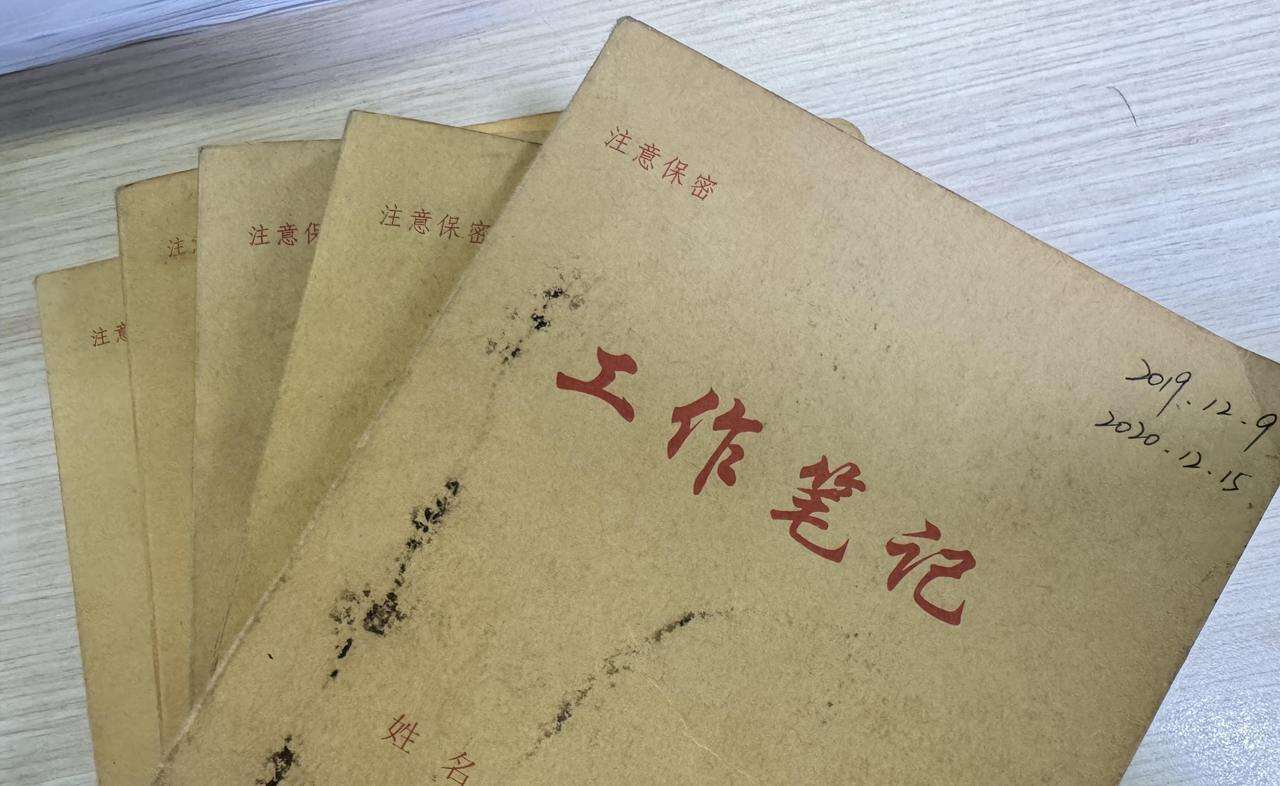 注意保密
工作笔记
2019.12.9
2020.12.15
姓名
注意保密
注意保
注意
注意